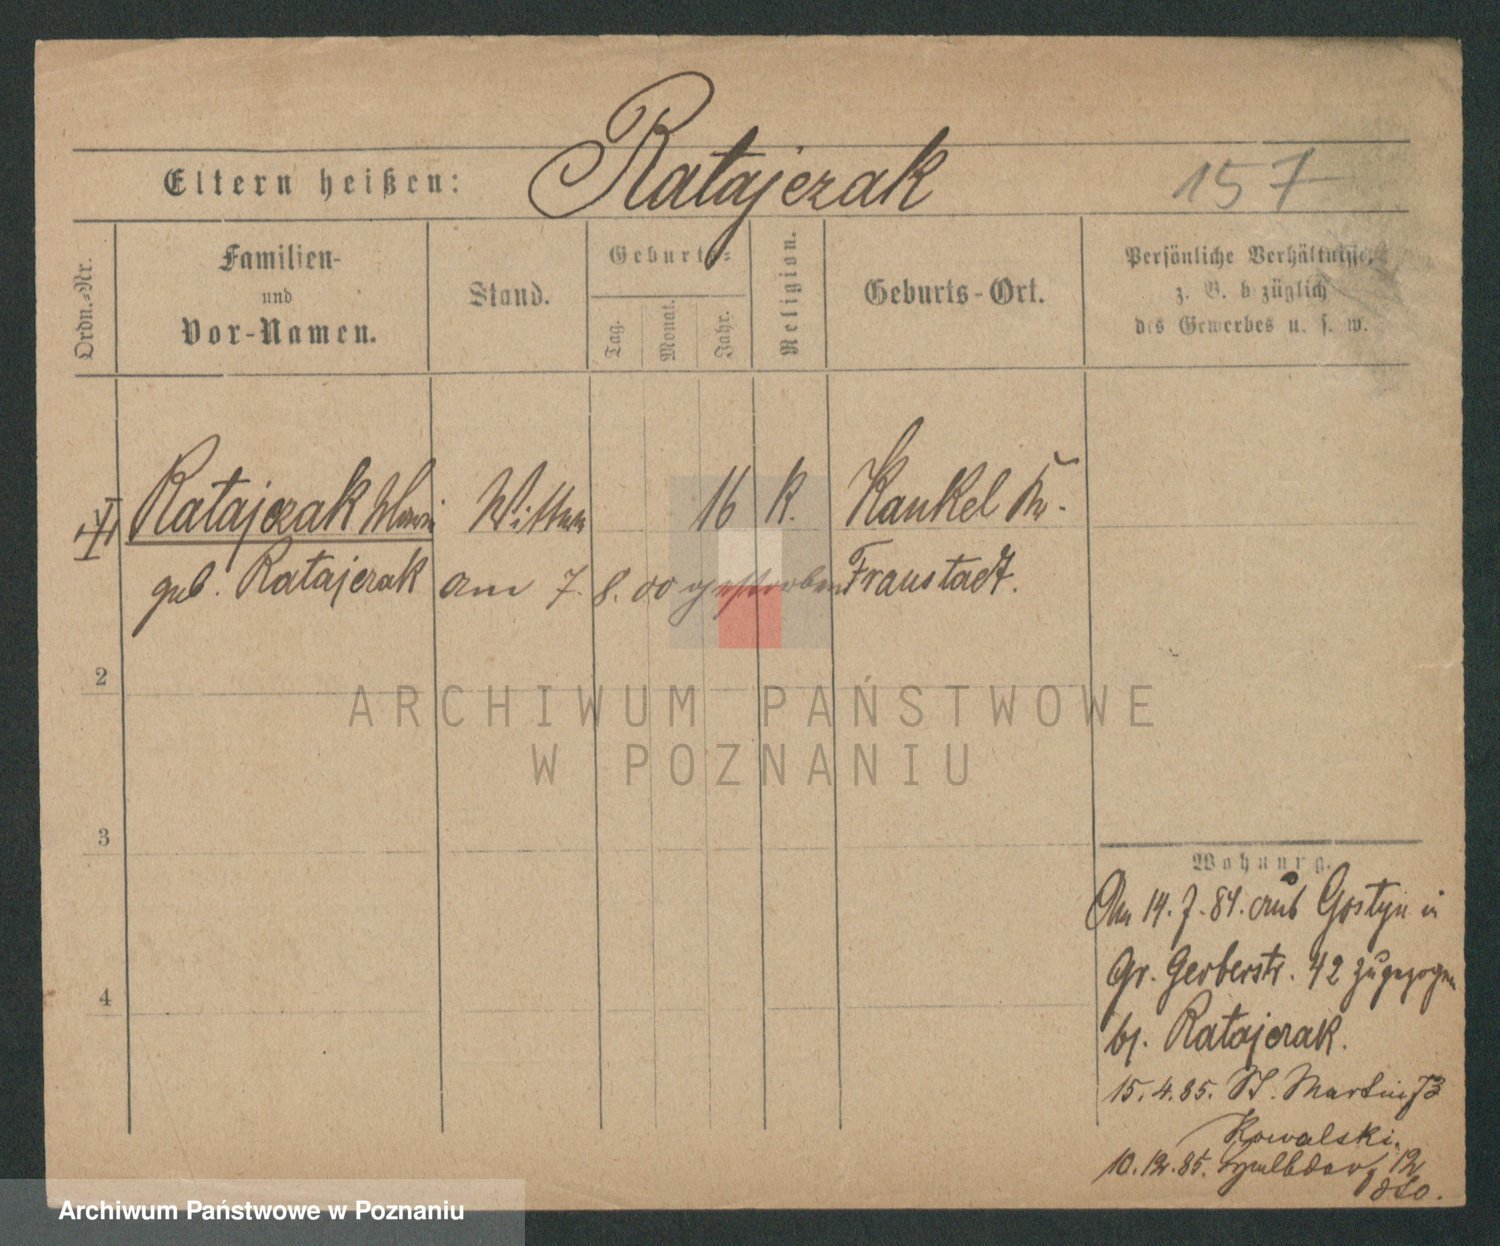 Eltern heißen: Ratajczak 157
Ordn.-Nr.
Familien-
und
Vor-Namen.
Stand.
Geburts-
Tag.
Monat.
Jahr.
Religion.
Geburts-Ort.
Persönliche Verhältnisse,
z. B. bezüglich
des Gewerbes u. s. w.
Ratajczak Wittwe 16 k. Kankel Kr.
geb. Ratajczak am 7. 8. 00 gestorben Fraustadt.
2
3
4
Wohnung.
Am 14. 7. 84. aus Gostyn in
Gr. Gerberstr. 42 zugezogen
bj. Ratajczak.
15. 4. 85. St. Martin 73
Kowalski.
10. 12. 85. 12
dto.
ARCHIWUM PAŃSTWOWE
W POZNANIU
Archiwum Państwowe w Poznaniu